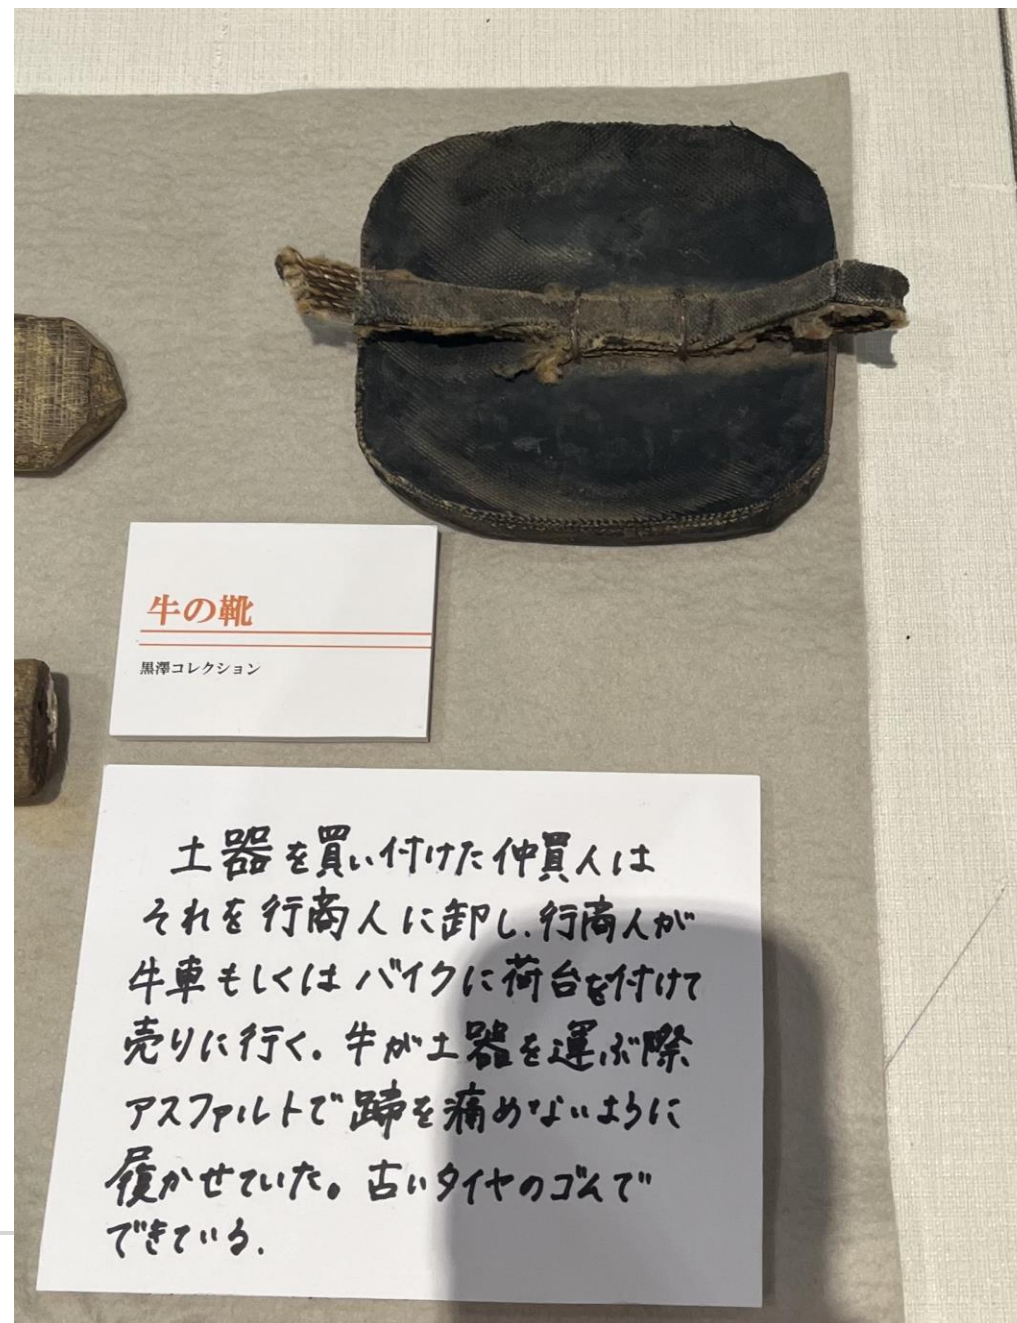 牛の靴
黒澤コレクション
土器を買い付けた仲買人は
それを行商人に卸し、行商人が
牛車もしくはバイクに荷台を付けて
売りに行く。牛が土器を運ぶ際
アスファルトで蹄を痛めないように
履かせていた。古いタイヤのゴムで
できている。